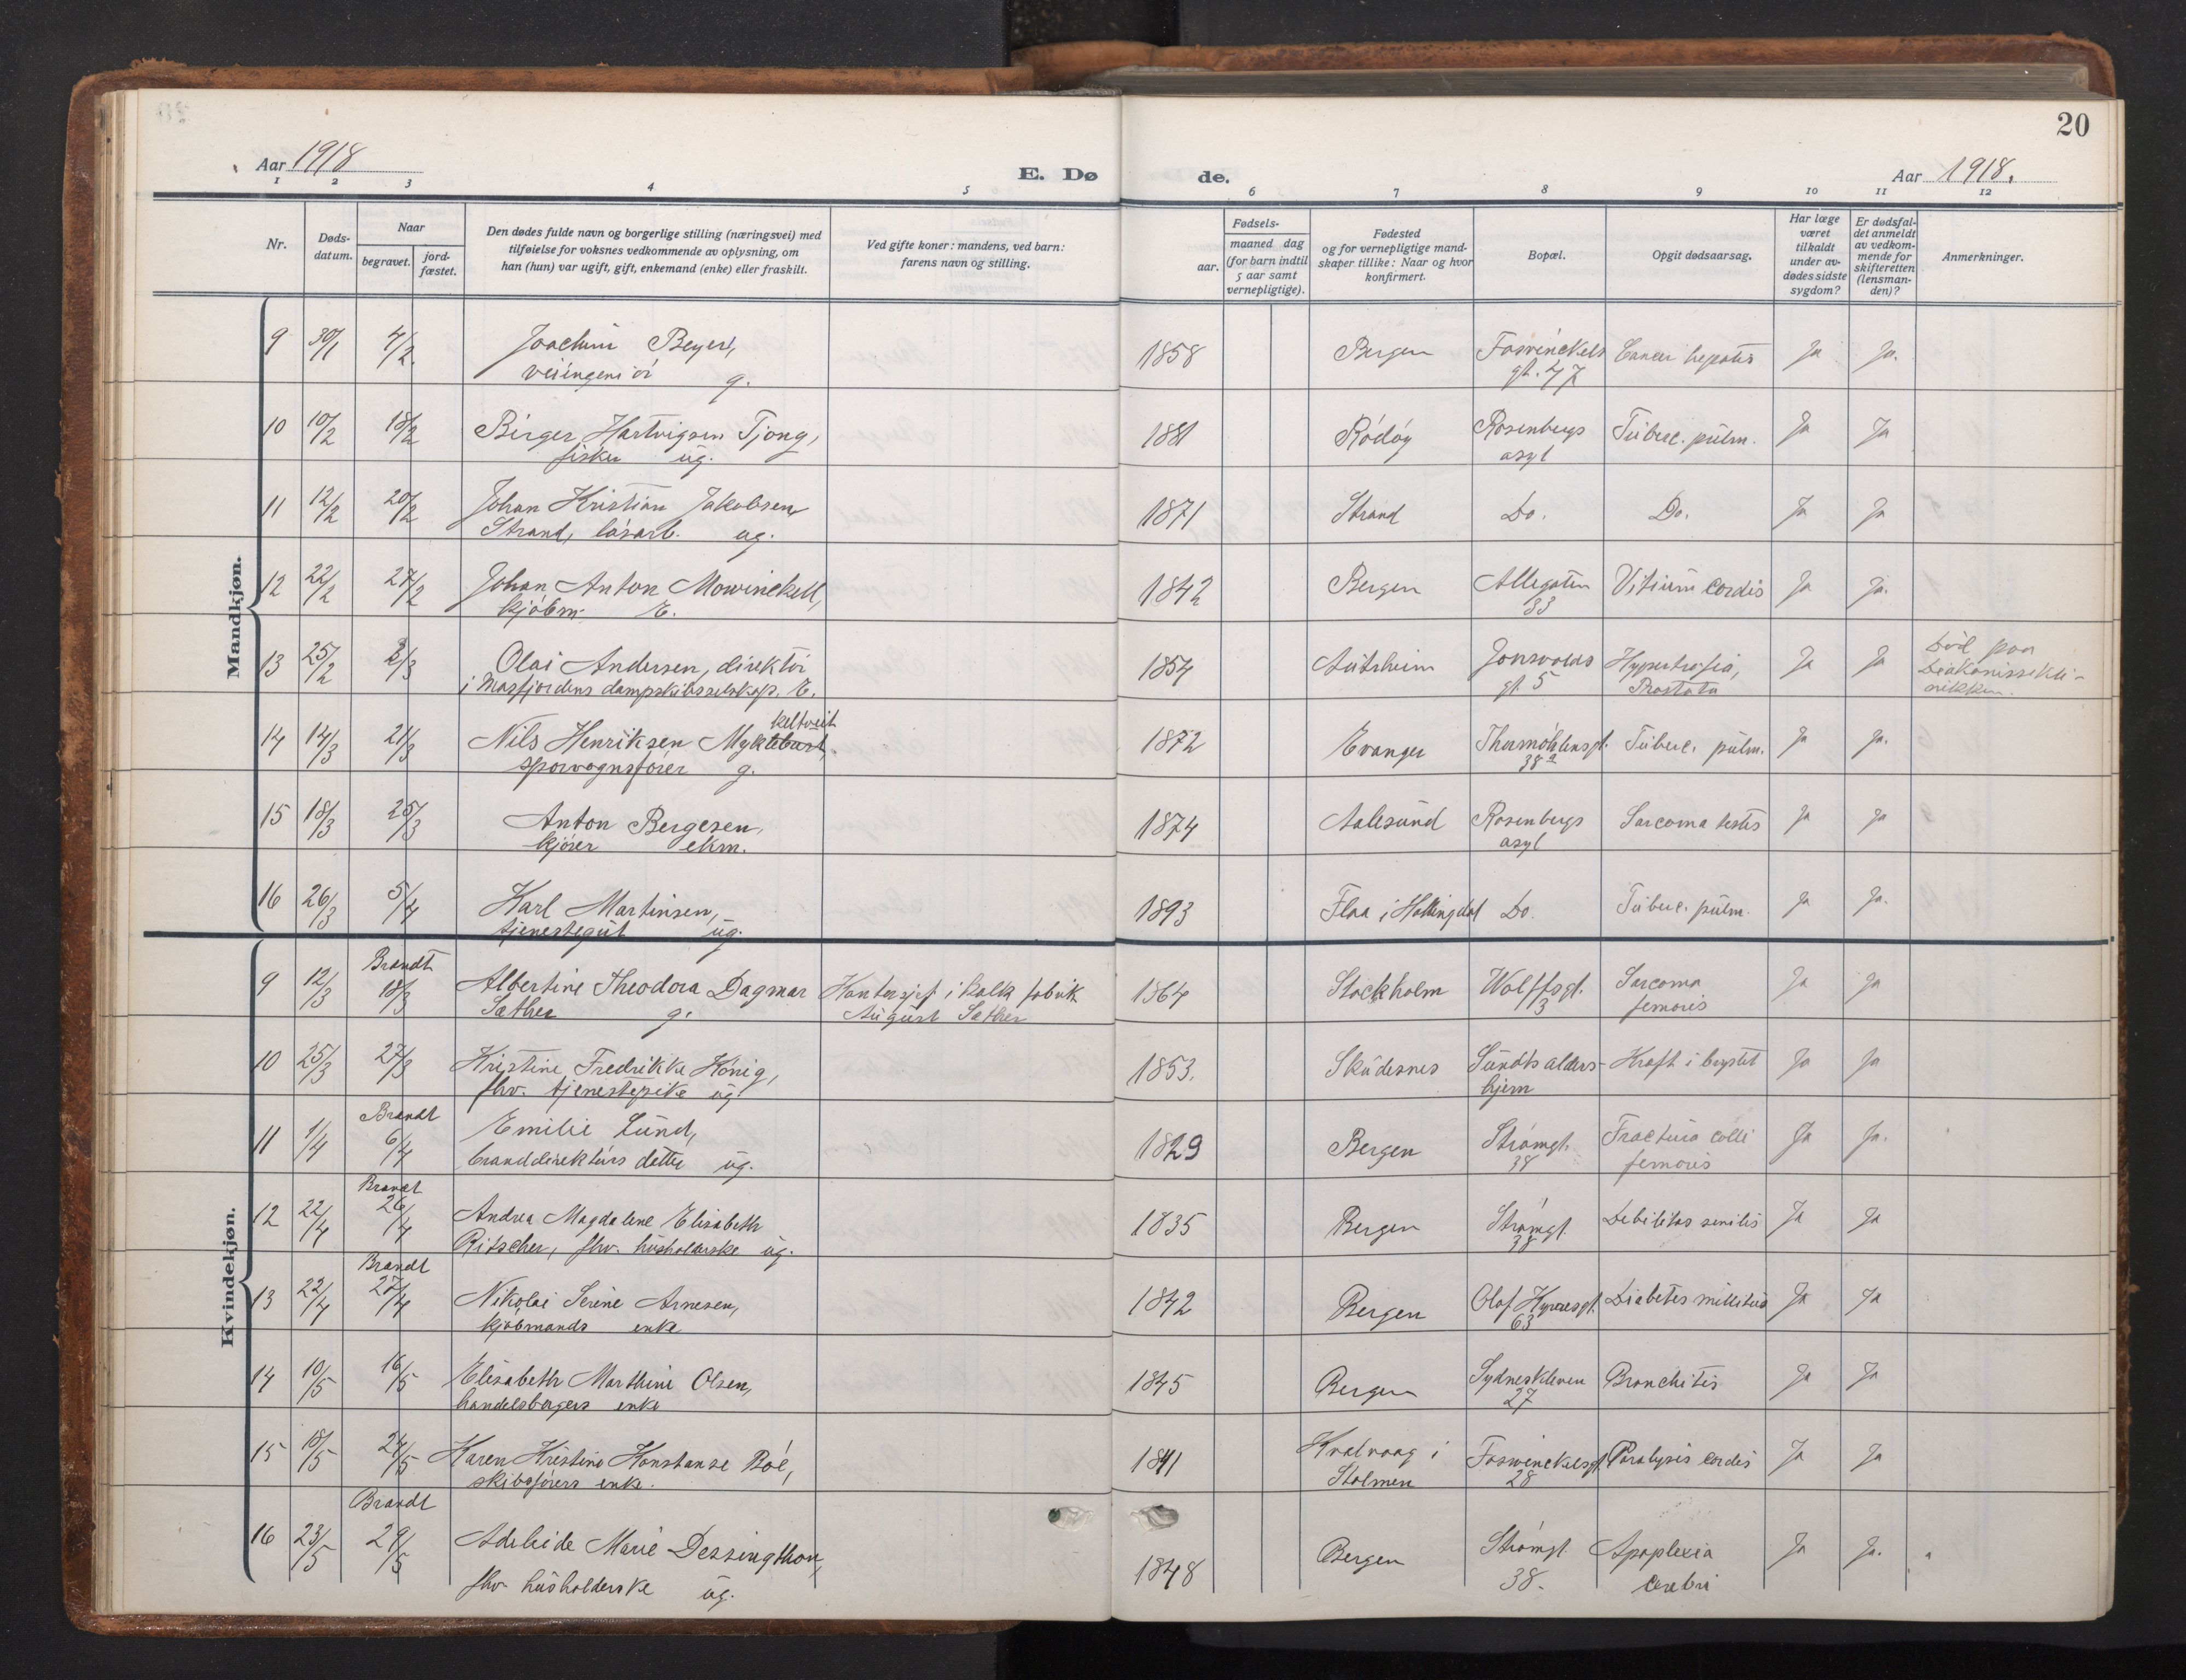 20
Aar 1918
E. Dø
de.
Aar 1918.
1 2 3 4 5 6 7 8 9 10 11 12
Nr.
Døds-
datum.
Naar
begravet.
jord-
fæstet.
Den dødes fulde navn og borgerlige stilling (næringsvei) med
tilføielse for voksnes vedkommende av oplysning, om
han (hun) var ugift, gift, enkemand (enke) eller fraskilt.
Ved gifte koner: mandens, ved barn:
farens navn og stilling.
Fødsels-
aar.
maaned dag
(for barn indtil
5 aar samt
vernepligtige).
Fødested
og for vernepligtige mand-
skaper tillike: Naar og hvor
konfirmert.
Bopæl.
Opgit dødsaarsag.
Har læge
været
tilkaldt
under av-
dødes sidste
sygdom?
Er dødsfal-
det anmeldt
av vedkom-
mende for
skifteretten
(lensman-
den)?
Anmerkninger.
Mandkjøn.
9 30/1 4/2. Joachim Beyer, 1858 Bergen Foswinckels Cancer hepatis Ja Ja.
veiingeniør g. gt. 47
10 10/2 18/2 Birger Hartvigsen Tjong, 1881 Rødøy Rosenbergs Tuberc. pulm. Ja Ja
fisker ug. asyl
11 12/2 20/2 Johan Kristian Jakobsen 1871 Strand Do. Do. Ja Ja
Strand, løsarb. ug.
12 22/2 27/2 Johan Anton Mowinckell, 1842 Bergen Allegaten Vitium cordis Ja Ja.
kjøbm. E. 33
13 25/2 2/3 Olai Andersen, direktør 1854 Autsheim Jonsvolds Hypertrofia, Ja Ja Død paa
i Masfjordens dampskibsselskap. E. gt. 5 Prostata Diakonissekli-
nikken.
keltveit
14 14/3 21/3 Nils Henriksen Myklebust, 1872 Evanger Thormøhlensgt. Tuberc. pulm. Ja Ja.
sporvognsfører g. 38a
15 18/3 25/3 Anton Bergesen, 1874 Aalesund Rosenbergs Sarcoma testis Ja Ja
kjører ekm. asyl
16 26/3 5/4 Karl Martinsen, 1893 Flaa i Hallingdal Do. Tuberc. pulm. Ja Ja.
tjenestegut ug.
Kvindekjøn.
Brandt
9 12/3 18/3 Albertine Theodora Dagmar Kontorsjef i kalkfabrik 1864 Stockholm Wolffsgt. Sarcoma Ja Ja
Sæther g. August Sæther 3 femoris
10 25/3 27/3 Kristine Fredrikke König, 1853. Skudesnes Sundts alders- Kræft i brystet Ja Ja
fhv. tjenestepike ug. hjem
Brandt
11 1/4 6/4 Emilie Lund, 1829 Bergen Strømgt. Fractura colli Ja Ja.
branddirektørs datter ug. 38 femoris
Brandt
12 22/4 26/4 Andrea Magdalene Elisabeth 1835 Bergen Strømgt. Debilitas senilis Ja Ja
Ritscher, fhv. husholderske ug. 38
Brandt
13 22/4 27/4 Nikolai Serine Arnesen, 1842 Bergen Olaf Kyrresgt. Diabetes mellitus Ja Ja
kjøbmands enke 63
14 10/5 16/5 Elisabeth Marthine Olsen, 1845 Bergen Sydneskleven Bronchitis Ja Ja
handelsborgers enke 27
15 18/5 24/5 Karen Kristine Konstanse Bøe, 1841 Kvalvaag i Foswinckelsgt. Paralysis cordis Ja Ja
skibsførers enke. Stolmen 28
Brandt
16 23/5 29/5 Adeleide Marie Dessingthon, 1848 Bergen Strømgt. Apoplexia Ja Ja.
fhv. husholderske ug. 38. cerebri